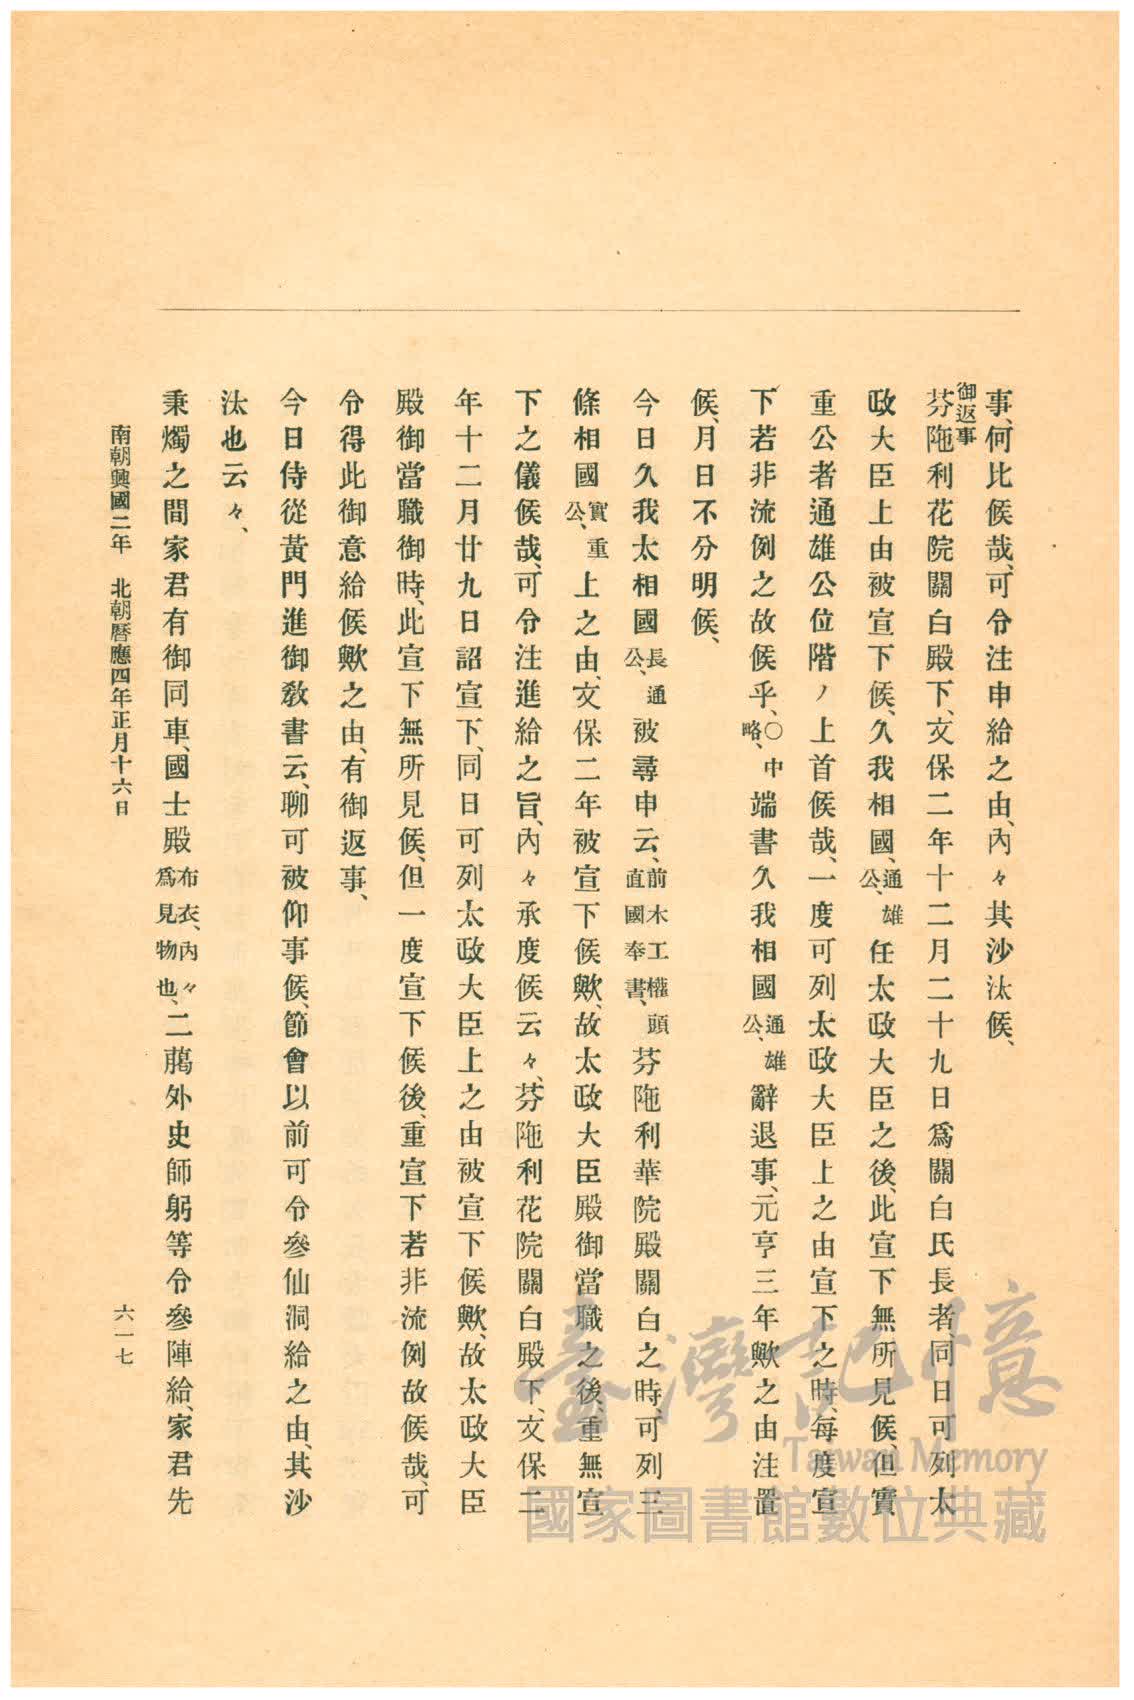 事、何比候哉、可令注申給之由、內々其沙汰候、
御返事
芬陁利花院關白殿下、文保二年十二月二十九日爲關白氏長者、同日可列太
政大臣上由被宣下候、久我相國、通雄公、任太政大臣之後、此宣下無所見候、但實
重公者通雄公位階ノ上首候哉、一度可列太政大臣上之由宣下之時、每度宣
下若非流例之故候乎、〇中略、端書久我相國通雄公、辭退事、元亨三年歟之由注置
候、月日不分明候、
今日久我太相國長通公、被尋申云、前木工權頭直國奉書、芬陁利華院殿關白之時、可列三
條相國實重公、上之由、文保二年被宣下候歟、故太政大臣殿御當職之後、重無宣
下之儀候哉、可令注進給之旨、內々承度候云々、芬陁利花院關白殿下、文保二
年十二月廿九日詔宣下、同日可列太政大臣上之由被宣下候歟、故太政大臣
殿御當職御時、此宣下無所見候、但一度宣下候後、重宣下若非流例故候哉、可
令得此御意給候歟之由、有御返事、
今日侍從黃門進御敎書云、聊可被仰事候、節會以前可令參仙洞給之由、其沙
汰也云々、
秉燭之間家君有御同車、國士殿布衣、內々爲見物也、二﨟外史師躬等令參陣給、家君先
南朝興國二年　北朝曆應四年正月十六日
六一七
臺灣記憶
Taiwan Memory
國家圖書館數位典藏